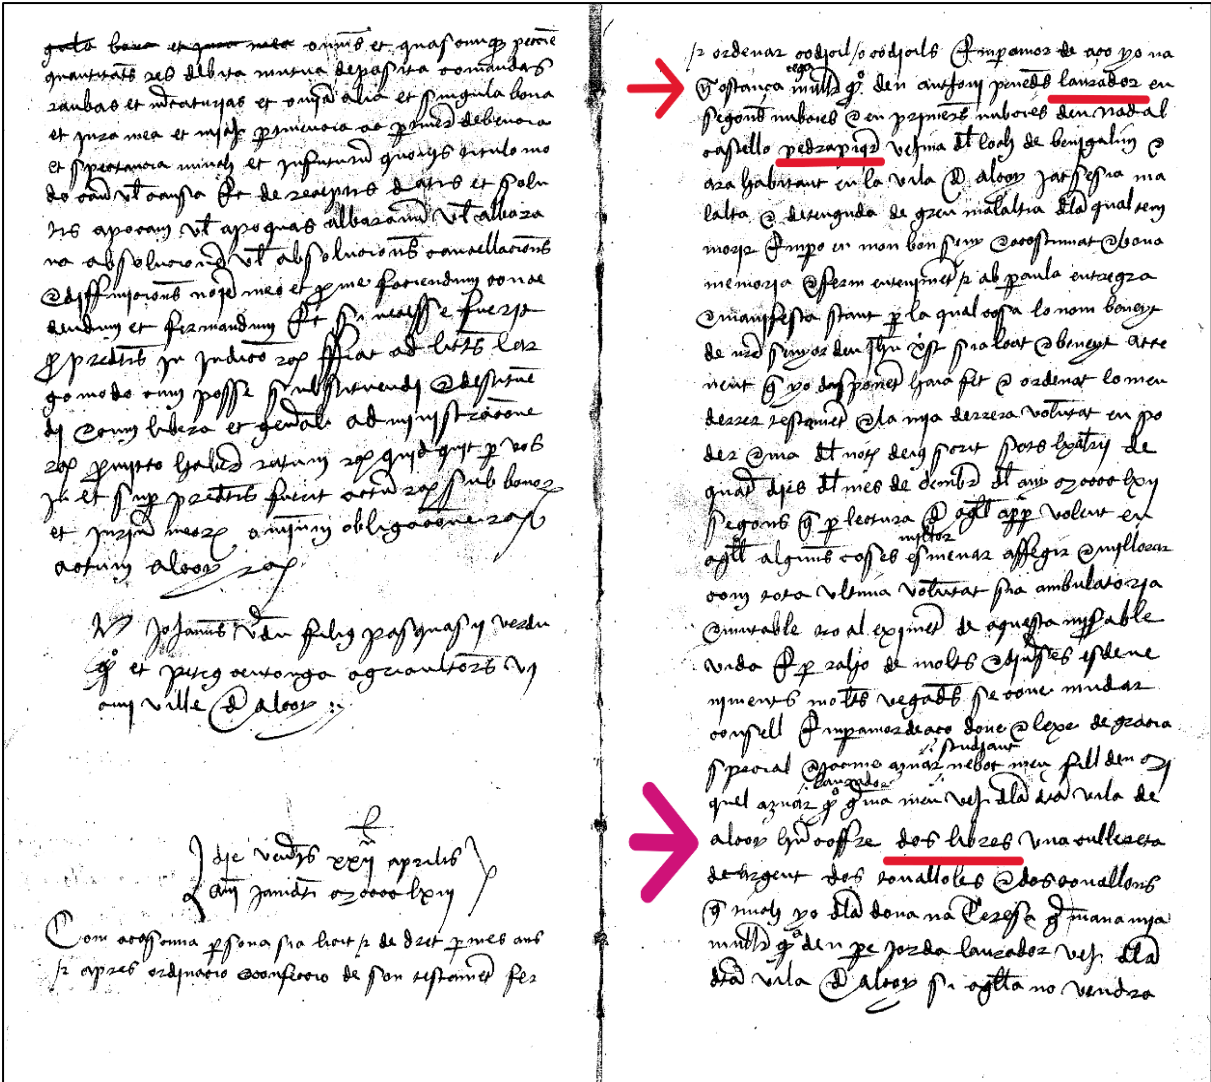 bona et omnes et quascumque peccunie
quantitats res debita mutua deposita comandas
raubas et mercaturias et omnia alia et singula bona
et jura mea et michi pertinencia ac pertinere debencia
et spectancia michi et in futurum quovis titulo mo
do causa vel causa Et de receptis datis et solu
tis apocam vel apoquas albaranum vel albara
na absolucionem vel absolucions cancellacions
e diffinicions nomine meo et pro me faciendum conce
dendum et fermandum Et si necesse fuerit
pro predictis in judicio fiat ad lites lar
go modo cum posse substituendi e destitue
di e cum libera et generali administracione
promitto habere ratum quidquit per vos
in et super predictis fuerit actum sub bonorum
et jurium meorum omnium obligacione
actum alcoy
Johannes Verdu filius pasquasii verdu
quondam et petrus centonga agricultores vi
cini ville de alcoy
die veneris xxii aprilis
anni domini mcccc lxiii
Com acascuna persona sia licit de dret per mes ans
apres ordinacio e confeccio de son testament fer
ordenar codicil o codicils Emperamor de aço yo na
Costança muller quondam den anthoni penedes laurador en
segons nubcies e en primeres nubcies den nadal
castello pedrapiquer vehina del loch de benigalim e
ara habitant en la vila de alcoy jatsessia ma
lalta e detenguda de greu malaltia dela qual tem
morir Empo en mon bon seny e acostumat e bona
memoria e ferm enteniment ab paula entregra
e manifesta stant per la qual cosa lo nom beneyt
de nostre senyor deu Jhesu xrist sia loat e beneyt atte
nent que yo disponent haia fet e ordenat lo meu
derrer testament e la mia derrera voluntat en po
der e ma del notari deius scrit sots kalendari de
quatre dies del mes de dembre del any mcccc lxii
segons que per lectura de aquell appar volent en
aquell algunes coses esmenar affegir e millorar
com tota ultima voluntat sia ambulatoria
e mutable tro al eximent de aquesta miserable
vida E per rahio de molts e diverses esdeve
niments moltes vegades se cove mudar
consell Emperamor de aco done e lexe de gracia
studiant
special a Jacme aznar nebot meu fill den mi
laurador
quel aznar quondam germa meu vehi dela dita vila de
alcoy hun coffre dos libres una cullereta
de argent dos tovalloles e dos tovallons
que nuch yo dela dona na Teresa germana mia
muller quondam den pere jorda laurador vehi dela
dita vila de alcoy si aquella no vendra